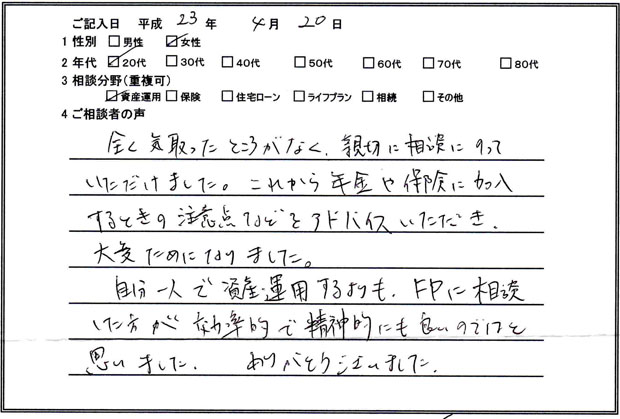 ご記入日 平成 23 年 4 月 20 日
1 性別 □男性 ☑女性
2 年代 ☑20代 □30代 □40代 □50代 □60代 □70代 □80代
3 相談分野(重複可)
☑資産運用 □保険 □住宅ローン □ライフプラン □相続 □その他
4 ご相談者の声
全く気取ったところがなく、親切に相談にのって
いただけました。これから年金や保険に加入
するときの注意点などをアドバイスいただき、
大変ためになりました。
自分一人で資産運用するよりも、FPに相談
した方が効率的で精神的にも良いのではと
思いました。 ありがとうございました。